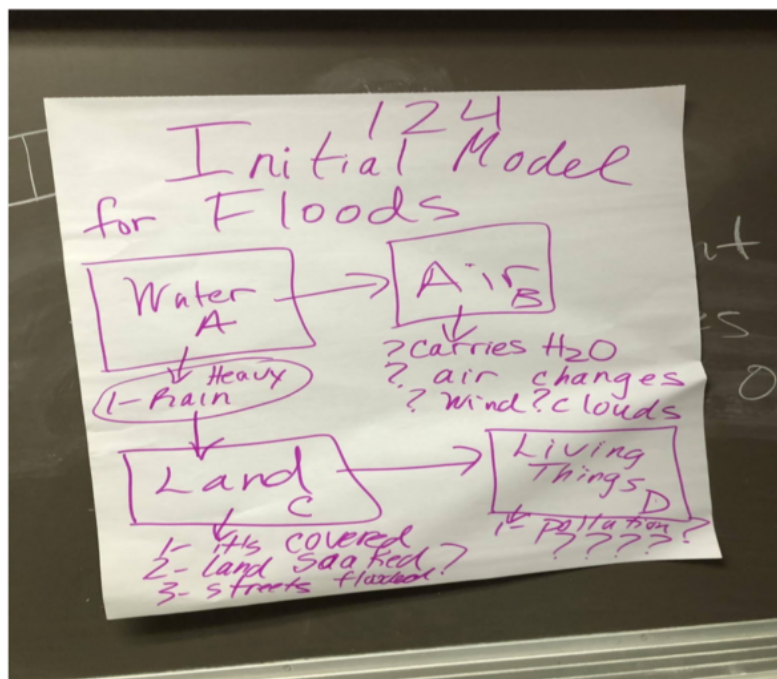 124
Initial Model
for Floods
Water
A
Air B
? carries H2O
? air changes
? wind ? clouds
Heavy
1- Rain
Land
C
Living
Things
D
1- it's covered
2- land soaked ?
3- streets flooded
1- pollution ?
? ? ? ?